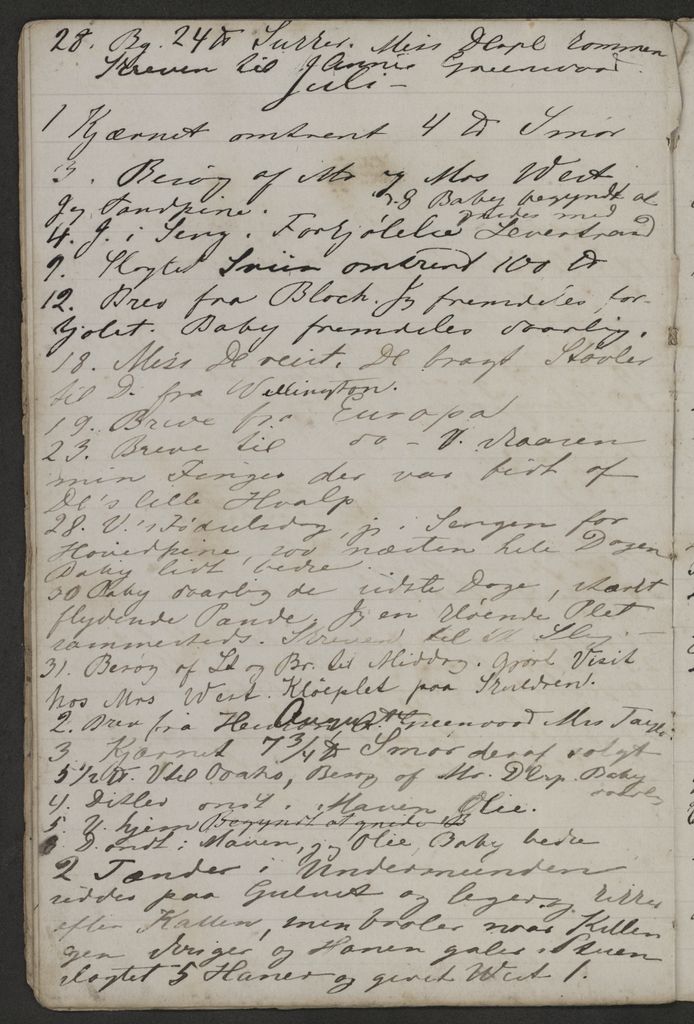 28. Bg. 24 ℔ Sukker. Miss Dlspl kommen
Skreven til Annie Greenwood.
Juli –
1 Kjærnet omtrent 4 ℔ Smør
3. Besøg af Mr og Mrs West
Jeg Tandpine. 28 Baby begyndt at
gnides med
4. J. i Seng. Forkjølelse Levertran
9. Slagtet Sviin omtrent 100 ℔
12. Brev fra Bloch. Jeg fremdeles for-
kjølet. Baby fremdeles daarlig.
18. Miss Dl reist. Dl bragt Støvler
til D. fra Wellington.
19. Breve fra Europa
23. Breve til do – V. daaren
min Finger der var bidt af
Dl's lille Hvalp
28. V.'s Fødselsdag, jeg i Sengen for
Hovedpine, sov næsten hele Dagen
Baby lidt bedre.
30 Baby daarlig de sidste Dage, stærkt
flydende Pande. Jeg en kløende Plet
sammesteds. Skreven til
31. Besøg af St og Br. til Middag. Gjort Visit
hos Mrs West. Kløeplet paa Skuldren.
August
2. Brev fra Greenwood Mrs Taylor
3 Kjærnet 7 3/4 ℔ Smør deraf solgt
5 1/2 ℔. V til Ooaks, Besøg af Mr. Dlsp. Baby
daarlig
4. Ditlev ondt i Maven Olie.
5. V. hjem Begyndt at gnide B
6 D. ondt i Maven, jeg Olie, Baby bedre
2 Tænder i Undermunden
siddes paa Gulvet og leger og kikker
efter Katten, men broler naar Killin
gen skriger og Hanen galer i Stuen
slagtet 5 Haner og givet West 1.